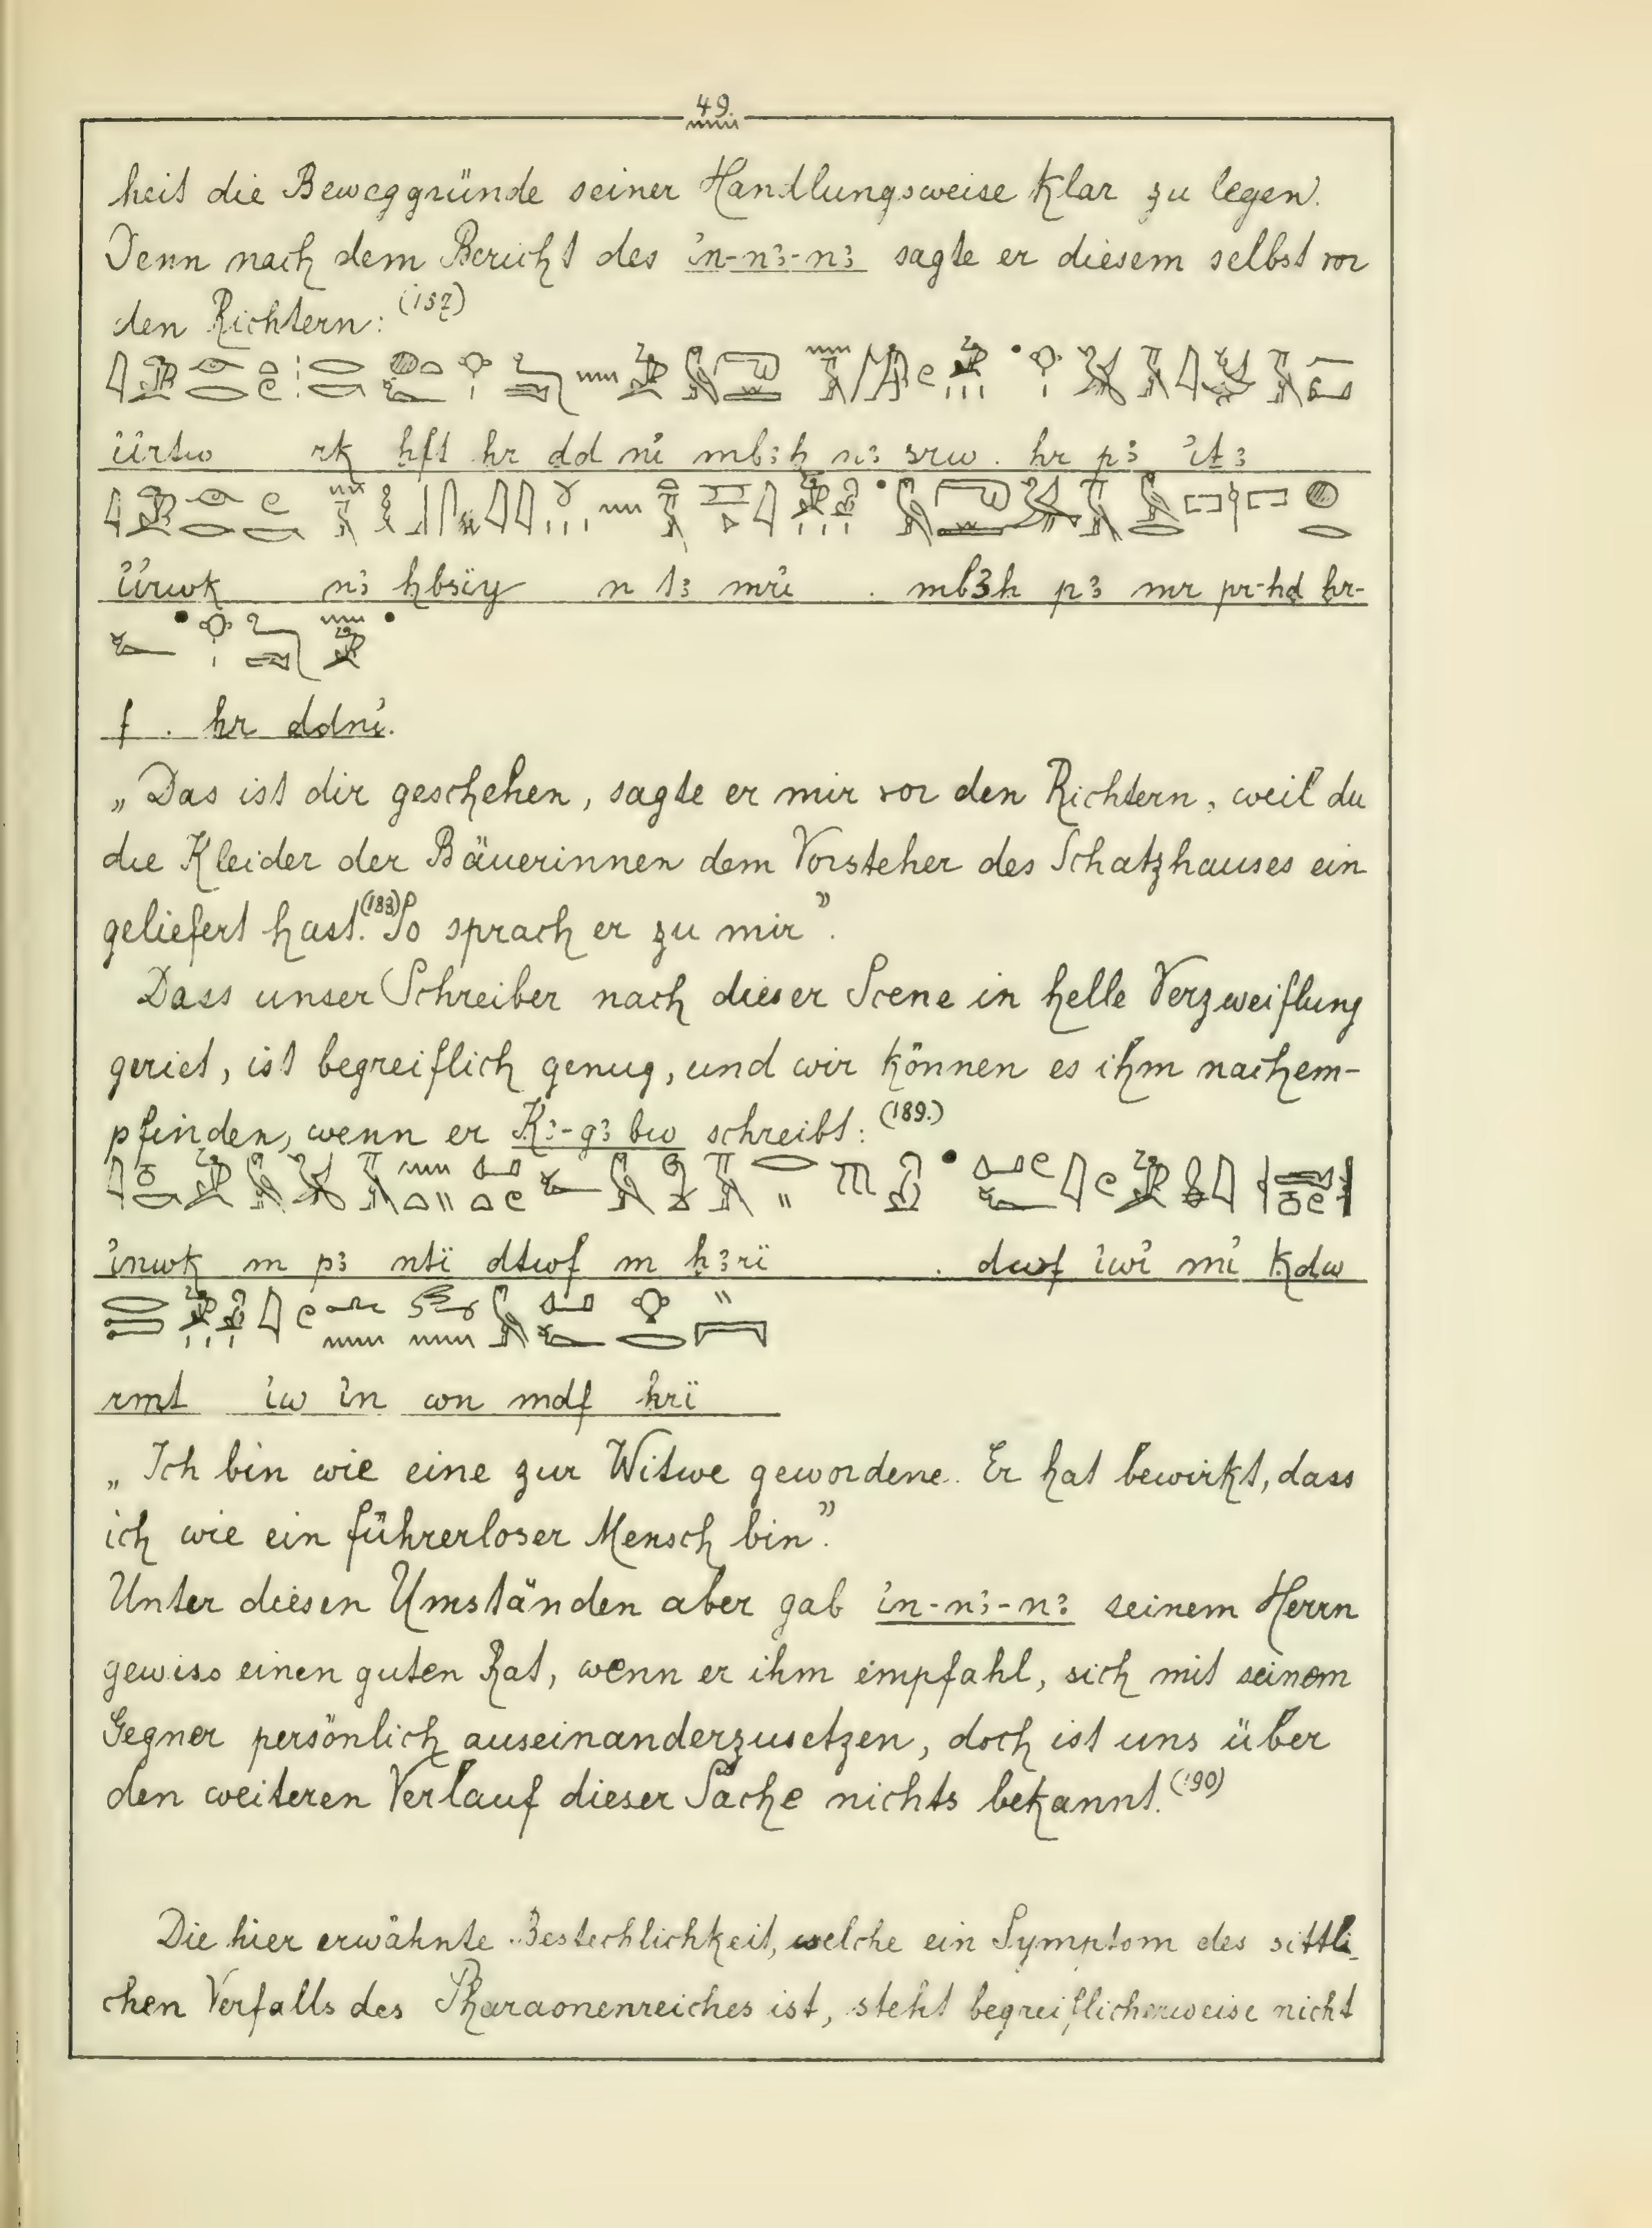 49.
heit die Beweggründe seiner Handlungsweise klar zu legen.
Denn nach dem Bericht des i҆n-nꜣ-nꜣ sagte er diesem selbst vor
den Richtern:
i҆i҆rtw rk ḫft ḥr dd ni҆ mbꜣḥ nꜣ srw . ḥr pꜣ i҆tꜣ
i҆i҆rwk nꜣ ḥbsïy n tꜣ mri҆ . mbꜣḥ pꜣ mr pr-ḥḏ ḫr-
f . ḥr ddni҆.
„Das ist dir geschehen, sagte er mir vor den Richtern, weil du
die Kleider der Bäuerinnen dem Vorsteher des Schatzhauses ein
geliefert hast. (188) So sprach er zu mir”.
Dass unser Schreiber nach dieser Scene in helle Verzweiflung
geriet, ist begreiflich genug, und wir können es ihm nachem-
pfinden, wenn er Kꜣ-gꜣ bw schreibt: (189.)
i҆nwk m pꜣ ntï dtwf m ḫꜣrï . dwf i҆wi҆ mi҆ ḳdw
rmt i҆w i҆n wn mdf ḥrï
„Ich bin wie eine zur Witwe gewordene. Er hat bewirkt, dass
ich wie ein führerloser Mensch bin”.
Unter diesen Umständen aber gab i҆n-nꜣ-nꜣ seinem Herrn
gewiss einen guten Rat, wenn er ihm empfahl, sich mit seinem
Gegner persönlich auseinanderzusetzen, doch ist uns über
den weiteren Verlauf dieser Sache nichts bekannt. (190)
Die hier erwähnte Bestechlichkeit, welche ein Symptom des sittli-
chen Verfalls des Pharaonenreiches ist, steht begreiflicherweise nicht